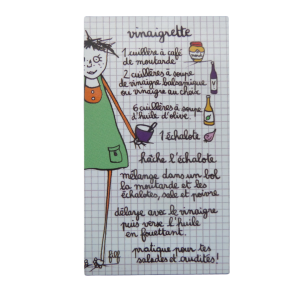 vinaigrette
1 cuillère à café
de moutarde
2 cuillères à soupe
de vinaigre balsamique
ou vinaigre au choix
6 cuillères à soupe
d'huile d'olive
1 échalote
hâche l'échalote
mélange dans un bol
la moutarde et les
échalotes, sale et poivre
délaye avec le vinaigre
puis verse l'huile
en fouettant.
pratique pour tes
salades et crudités!